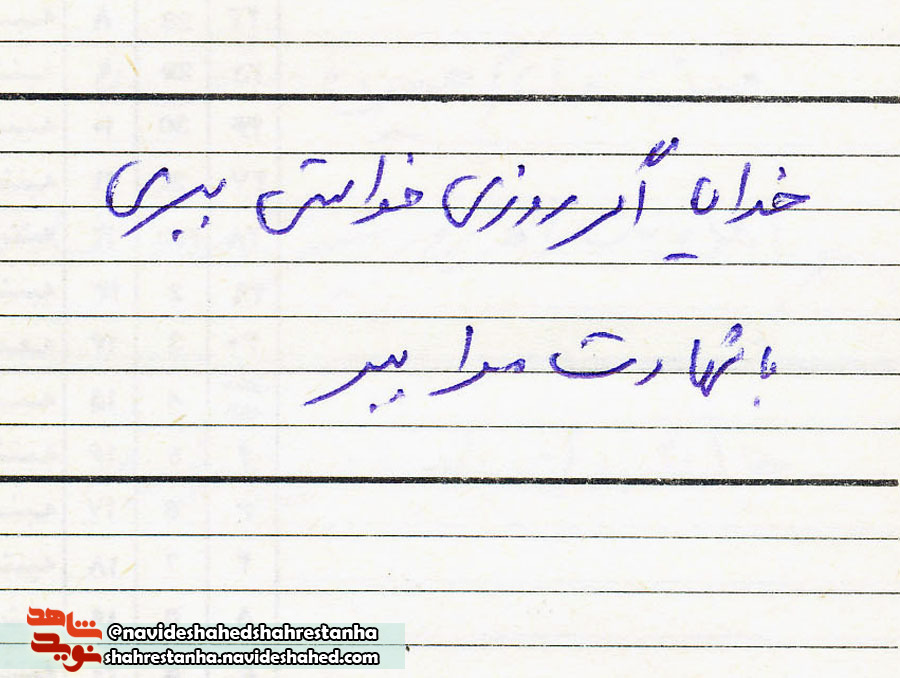 خدایا اگر روزی خواستی ببری
با شهادت مرا ببر
شاهد
نوید
@navideshahedshahrestanha
shahrestanha.navideshahed.com